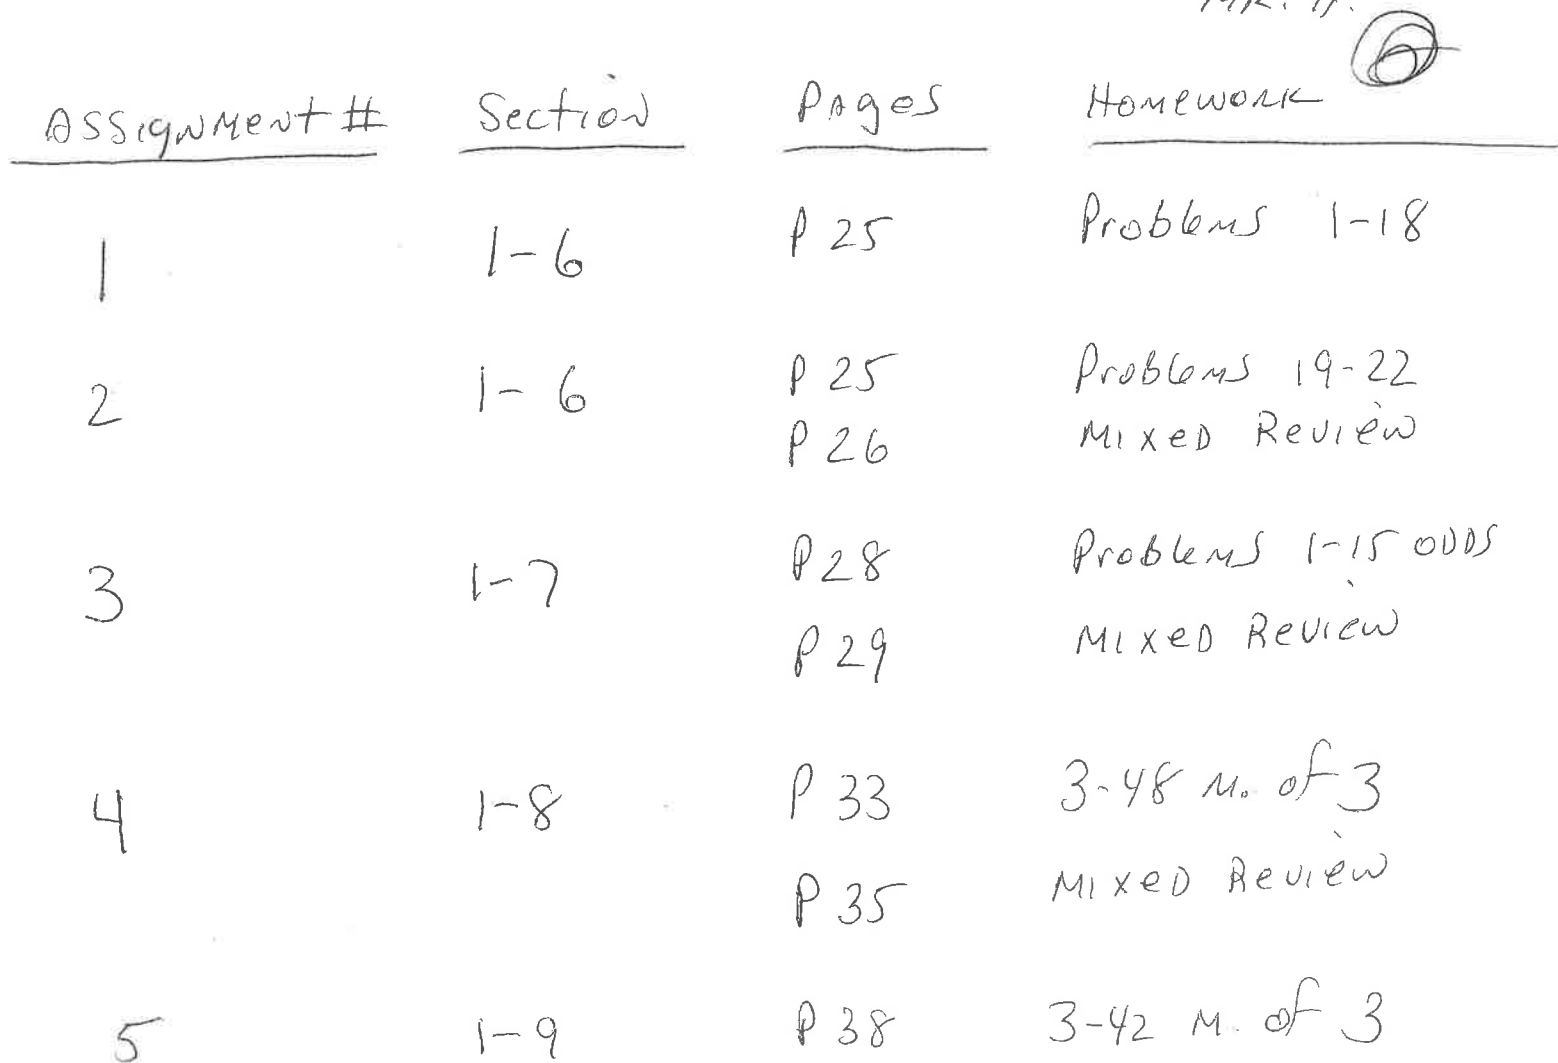 Assignment # Section Pages Homework
1 1-6 P 25 Problems 1-18
2 1-6 P 25 Problems 19-22
P 26 Mixed Review
3 1-7 P 28 Problems 1-15 ODDS
P 29 Mixed Review
4 1-8 P 33 3-48 M. of 3
P 35 Mixed Review
5 1-9 P 38 3-42 M. of 3